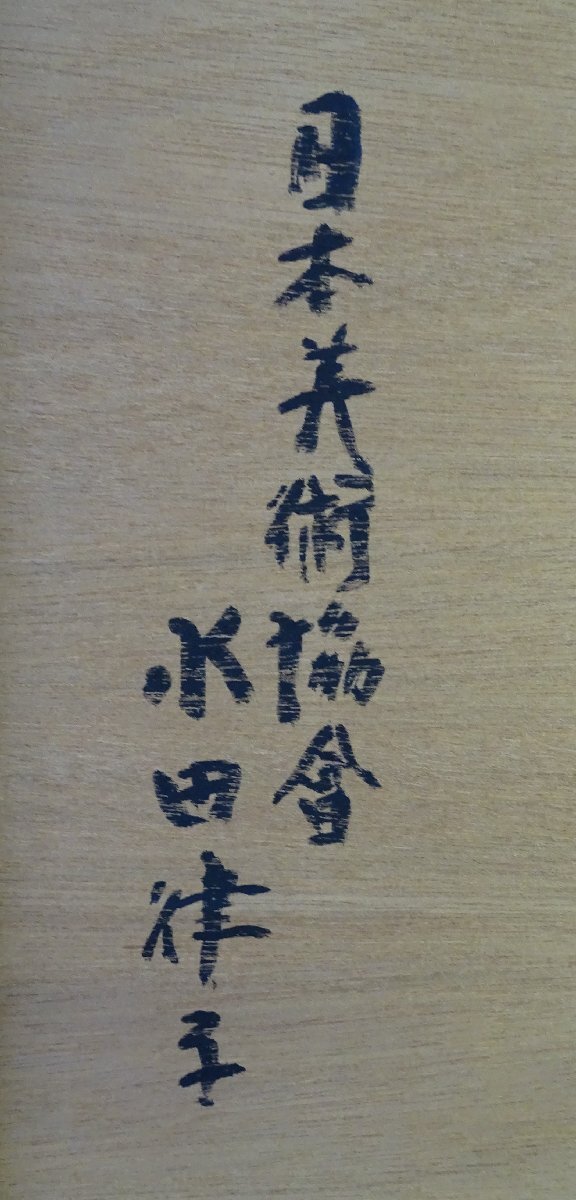 日本美術協會
水田律子